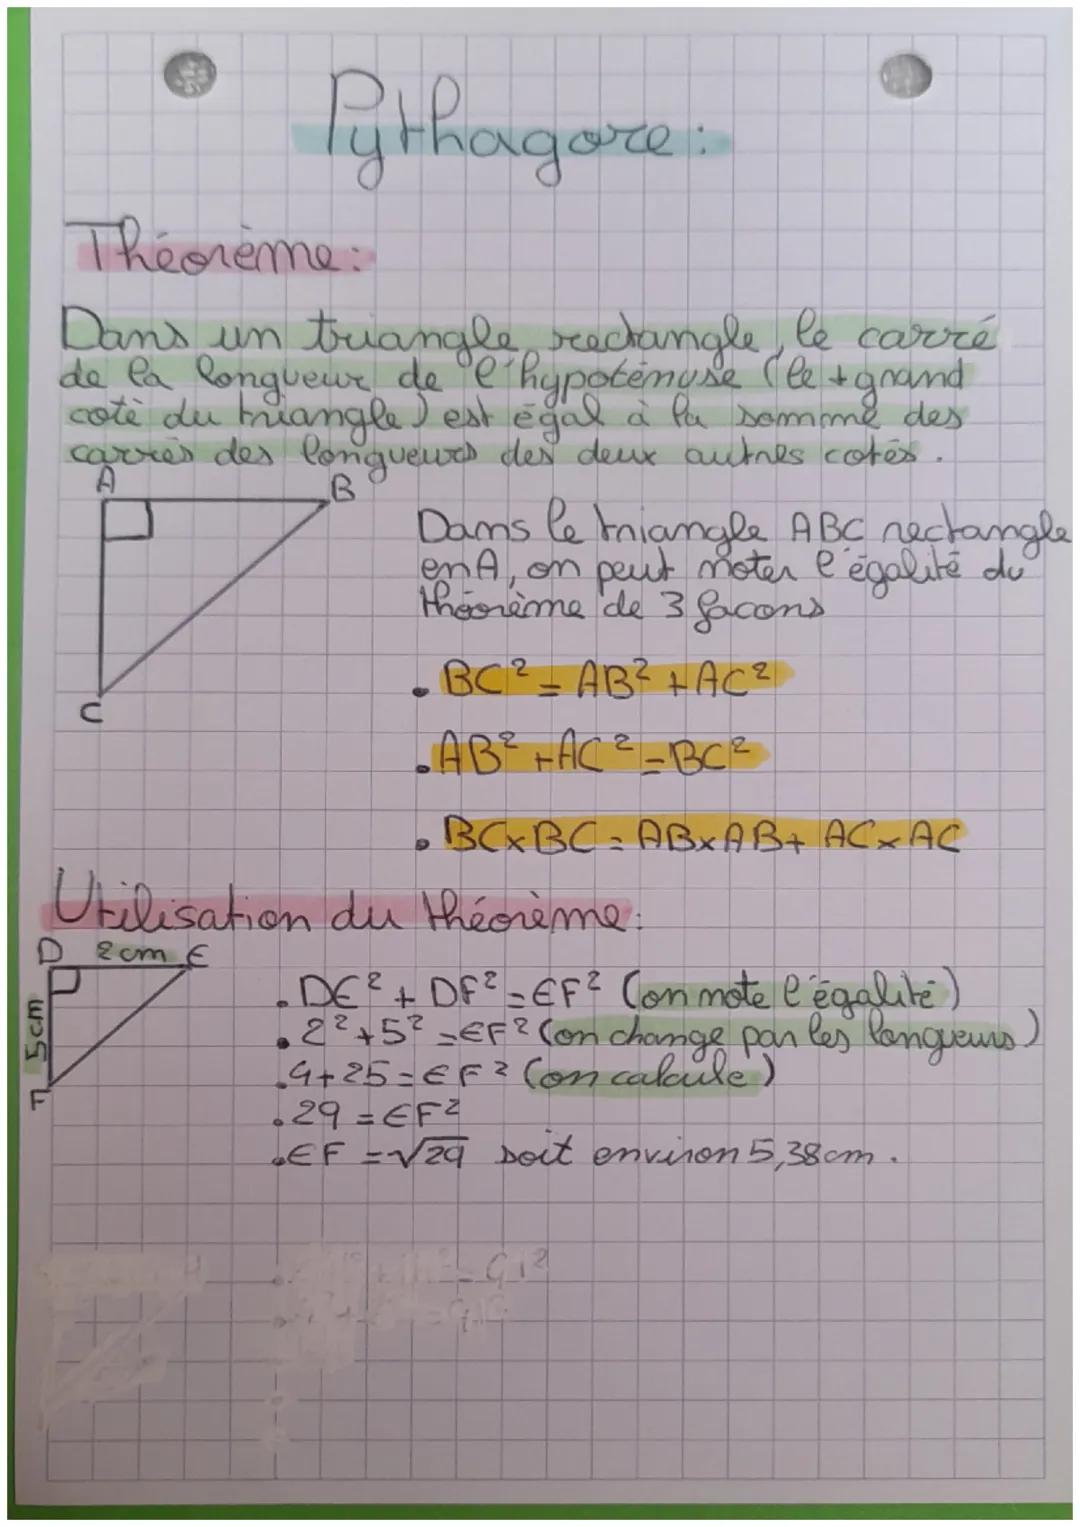 Pythagore:
Théorème:
Dans un triangle rectangle, le carré
de la longueur de l'hypoténuse (le + grand
coté du triangle) est égal à la somme des
carrés des longueurs des deux autres cotés.
A
B
C
Dans le triangle ABC rectangle
en A, on peut noter l'égalité du
théorème de 3 facons
• BC² = AB² + AC²
• AB² + AC² = BC²
• BC×BC = AB×AB + AC×AC
Utilisation du théorème:
D 2cm E
5cm
F
• DE² + DF² = EF² (on note l'égalité)
• 2² + 5² = EF² (on change par les longueurs)
• 4 + 25 = EF² (on calcule)
• 29 = EF²
• EF = √29 soit environ 5,38cm.